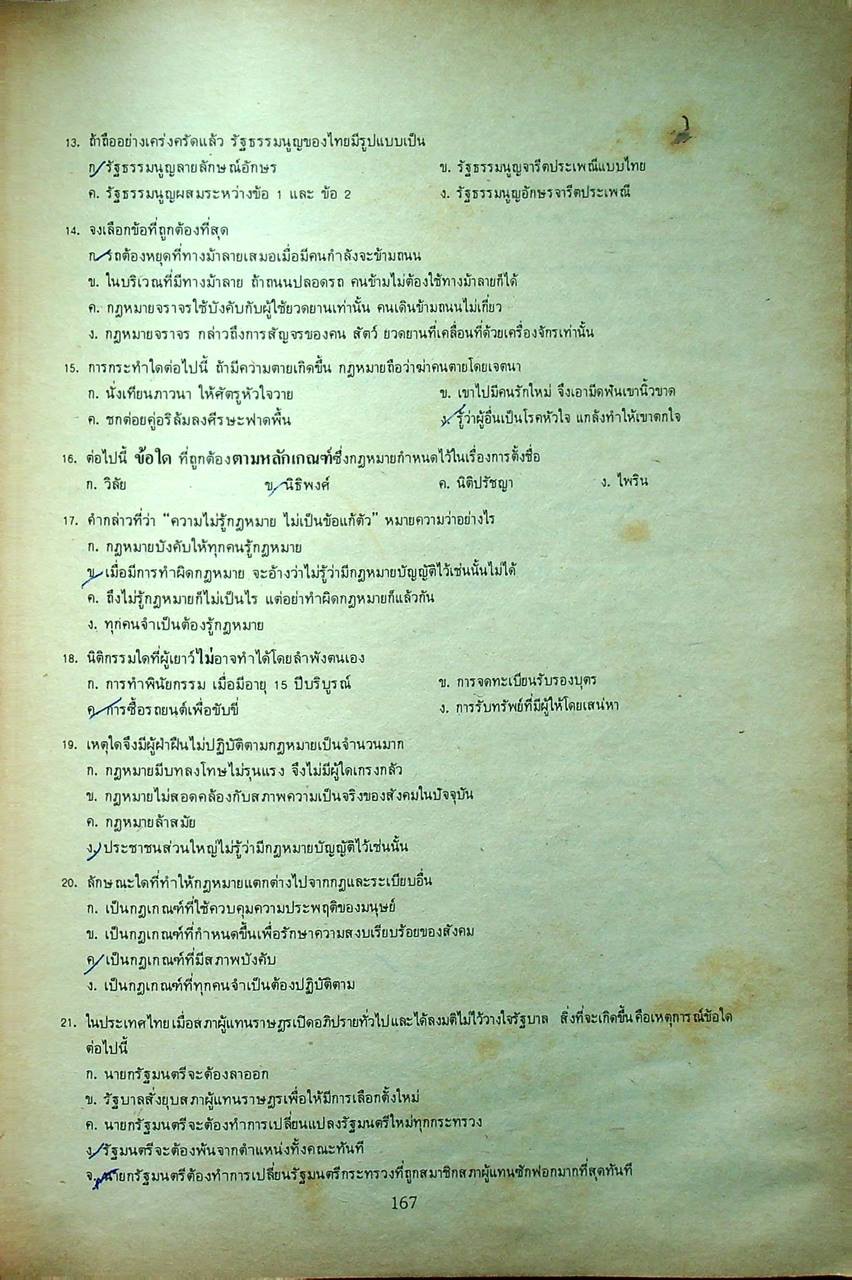 13. ถ้าถืออย่างเคร่งครัดแล้ว รัฐธรรมนูญของไทยมีรูปแบบเป็น
ก. รัฐธรรมนูญลายลักษณ์อักษร ข. รัฐธรรมนูญจารีตประเพณีแบบไทย
ค. รัฐธรรมนูญผสมระหว่างข้อ 1 และ ข้อ 2 ง. รัฐธรรมนูญอักษรจารีตประเพณี
14. จงเลือกข้อที่ถูกต้องที่สุด
ก. รถต้องหยุดที่ทางม้าลายเสมอเมื่อมีคนกำลังจะข้ามถนน
ข. ในบริเวณที่มีทางม้าลาย ถ้าถนนปลอดรถ คนข้ามไม่ต้องใช้ทางม้าลายก็ได้
ค. กฎหมายจราจรใช้บังคับกับผู้ใช้ยวดยานเท่านั้น คนเดินข้ามถนนไม่เกี่ยว
ง. กฎหมายจราจร กล่าวถึงการสัญจรของคน สัตว์ ยวดยานที่เคลื่อนที่ด้วยเครื่องจักรเท่านั้น
15. การกระทำใดต่อไปนี้ ถ้ามีความตายเกิดขึ้น กฎหมายถือว่าฆ่าคนตายโดยเจตนา
ก. นั่งเทียนภาวนา ให้ศัตรูหัวใจวาย ข. เขาไปมีคนรักใหม่ จึงเอามีดฟันเขานิ้วขาด
ค. ชกต่อยคู่อริล้มลงศีรษะฟาดพื้น ง. รู้ว่าผู้อื่นเป็นโรคหัวใจ แกล้งทำให้เขาตกใจ
16. ต่อไปนี้ ข้อใด ที่ถูกต้องตามหลักเกณฑ์ซึ่งกฎหมายกำหนดไว้ในเรื่องการตั้งชื่อ
ก. วิลัย ข. นิธิพงศ์ ค. นิติปรัชญา ง. ไพริน
17. คำกล่าวที่ว่า "ความไม่รู้กฎหมาย ไม่เป็นข้อแก้ตัว" หมายความว่าอย่างไร
ก. กฎหมายบังคับให้ทุกคนรู้กฎหมาย
ข. เมื่อมีการทำผิดกฎหมาย จะอ้างว่าไม่รู้ว่ามีกฎหมายบัญญัติไว้เช่นนั้นไม่ได้
ค. ถึงไม่รู้กฎหมายก็ไม่เป็นไร แต่อย่าทำผิดกฎหมายก็แล้วกัน
ง. ทุกคนจำเป็นต้องรู้กฎหมาย
18. นิติกรรมใดที่ผู้เยาว์ไม่อาจทำได้โดยลำพังตนเอง
ก. การทำพินัยกรรม เมื่อมีอายุ 15 ปีบริบูรณ์ ข. การจดทะเบียนรับรองบุตร
ค. การซื้อรถยนต์เพื่อขับขี่ ง. การรับทรัพย์ที่มีผู้ให้โดยเสน่หา
19. เหตุใดจึงมีผู้ฝ่าฝืนไม่ปฏิบัติตามกฎหมายเป็นจำนวนมาก
ก. กฎหมายมีบทลงโทษไม่รุนแรง จึงไม่มีผู้ใดเกรงกลัว
ข. กฎหมายไม่สอดคล้องกับสภาพความเป็นจริงของสังคมในปัจจุบัน
ค. กฎหมายล้าสมัย
ง. ประชาชนส่วนใหญ่ไม่รู้ว่ามีกฎหมายบัญญัติไว้เช่นนั้น
20. ลักษณะใดที่ทำให้กฎหมายแตกต่างไปจากกฎและระเบียบอื่น
ก. เป็นกฎเกณฑ์ที่ใช้ควบคุมความประพฤติของมนุษย์
ข. เป็นกฎเกณฑ์ที่กำหนดขึ้นเพื่อรักษาความสงบเรียบร้อยของสังคม
ค. เป็นกฎเกณฑ์ที่มีสภาพบังคับ
ง. เป็นกฎเกณฑ์ที่ทุกคนจำเป็นต้องปฏิบัติตาม
21. ในประเทศไทย เมื่อสภาผู้แทนราษฎรเปิดอภิปรายทั่วไปและได้ลงมติไม่ไว้วางใจรัฐบาล สิ่งที่จะเกิดขึ้น คือเหตุการณ์ข้อใด
ต่อไปนี้
ก. นายกรัฐมนตรีจะต้องลาออก
ข. รัฐบาลสั่งยุบสภาผู้แทนราษฎรเพื่อให้มีการเลือกตั้งใหม่
ค. นายกรัฐมนตรีจะต้องทำการเปลี่ยนแปลงรัฐมนตรีใหม่ทุกกระทรวง
ง. รัฐมนตรีจะต้องพ้นจากตำแหน่งทั้งคณะทันที
จ. นายกรัฐมนตรีต้องทำการเปลี่ยนรัฐมนตรีกระทรวงที่ถูกสมาชิกสภาผู้แทนซักฟอกมากที่สุดทันที
167